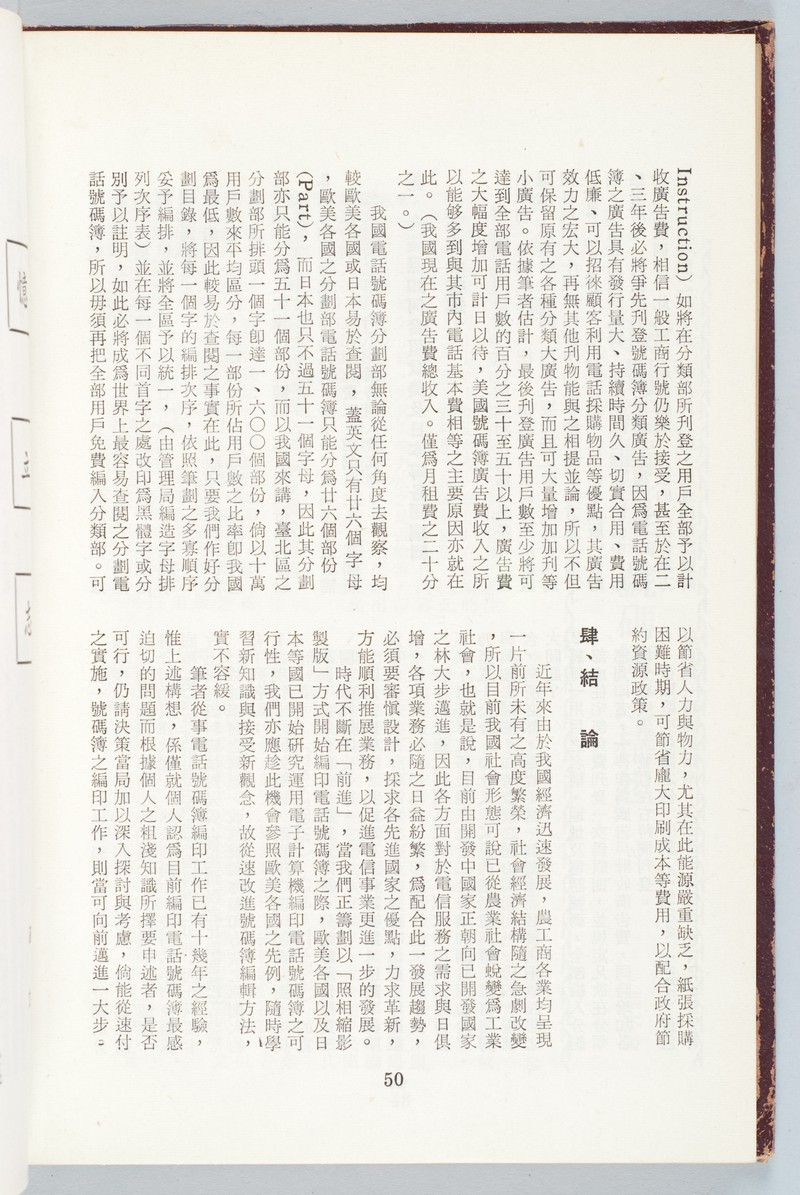 Instruction) 如將在分類部所刋登之用戶全部予以計
收廣告費，相信一般工商行號仍樂於接受，甚至於在二
、三年後必將爭先刋登號碼簿分類廣告，因爲電話號碼
簿之廣告具有發行量大、持續時間久、切實合用、費用
低廉、可以招徠顧客利用電話採購物品等優點，其廣告
效力之宏大，再無其他刋物能與之相提並論，所以不但
可保留原有之各種分類大廣告，而且可大量增加加刋等
小廣告。依據筆者估計，最後刋登廣告用戶數至少將可
達到全部電話用戶數的百分之三十至五十以上，廣告費
之大幅度增加可計日以待，美國號碼簿廣告費收入之所
以能够多到與其市內電話基本費相等之主要原因亦就在
此。（我國現在之廣告費總收入。僅爲月租費之二十分
之一。）
我國電話號碼簿分劃部無論從任何角度去觀察，均
較歐美各國或日本易於查閱，蓋英文只有廿六個字母
，歐美各國之分劃部電話號碼簿只能分爲廿六個部份
(Part)，而日本也只不過五十一個字母，因此其分劃
部亦只能分爲五十一個部份，而以我國來講，臺北區之
分劃部所排頭一個字卽達一、六〇〇個部份，倘以十萬
用戶數來平均區分，每一部份所佔用戶數之比率卽我國
爲最低，因此較易於查閱之事實在此，只要我們作好分
劃目錄，將每一個字的編排次序，依照筆劃之多寡順序
妥予編排，並將全區予以統一，（由管理局編造字母排
列次序表）並在每一個不同首字之處改印爲黑體字或分
別予以註明，如此必將成爲世界上最容易查閱之分劃電
話號碼簿，所以毋須再把全部用戶免費編入分類部。可
以節省人力與物力，尤其在此能源嚴重缺乏，紙張採購
困難時期，可節省龐大印刷成本等費用，以配合政府節
約資源政策。
肆、結　論
近年來由於我國經濟迅速發展，農工商各業均呈現
一片前所未有之高度繁榮，社會經濟結構隨之急劇改變
，所以目前我國社會形態可說已從農業社會蛻變爲工業
社會，也就是說，目前由開發中國家正朝向已開發國家
之林大步邁進，因此各方面對於電信服務之需求與日俱
增，各項業務必隨之日益紛繁，爲配合此一發展趨勢，
必須要審愼設計，採求各先進國家之優點，力求革新，
方能順利推展業務，以促進電信事業更進一步的發展。
時代不斷在「前進」，當我們正籌劃以「照相縮影
製版」方式開始編印電話號碼簿之際，歐美各國以及日
本等國已開始研究運用電子計算機編印電話號碼簿之可
行性，我們亦應趁此機會參照歐美各國之先例，隨時學
習新知識與接受新觀念，故從速改進號碼簿編輯方法，
實不容緩。
筆者從事電話號碼簿編印工作已有十幾年之經驗，
惟上述構想，係僅就個人認爲目前編印電話號碼簿最感
迫切的問題而根據個人之粗淺知識所擇要申述者，是否
可行，仍請決策當局加以深入探討與考慮，倘能從速付
之實施，號碼簿之編印工作，則當可向前邁進一大步。
50